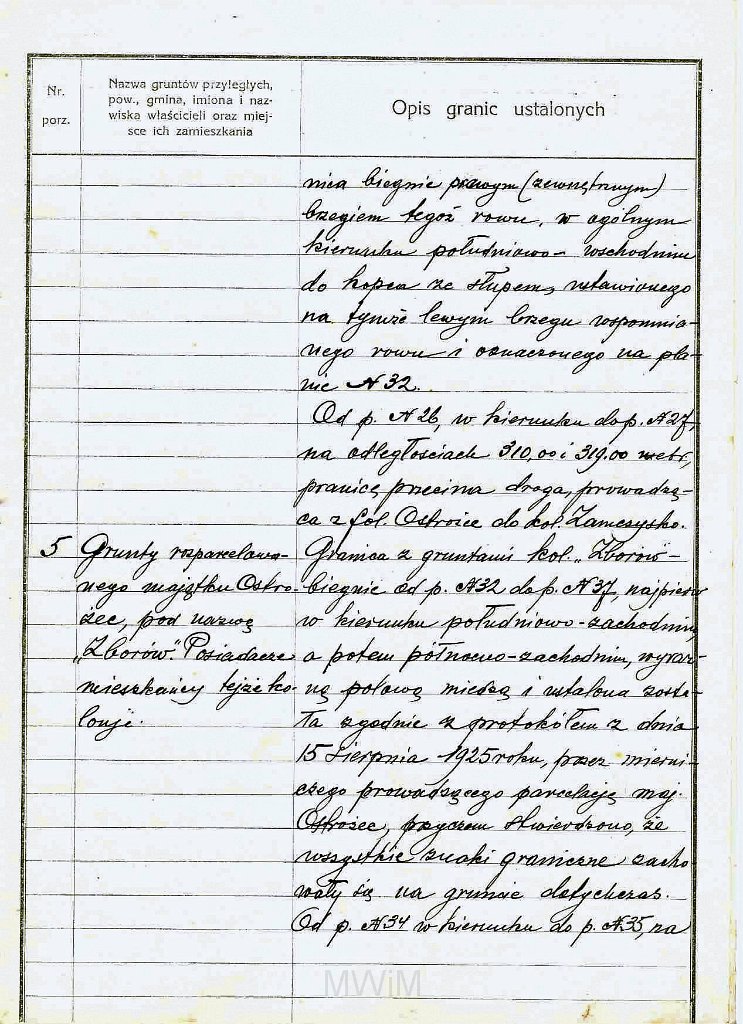 Nr.
porz.
Nazwa gruntów przyległych,
pow., gmina, imiona i naz-
wiska właścicieli oraz miej-
sce ich zamieszkania
Opis granic ustalonych
nica biegnie prawym (zewnętrznym)
brzegiem tegoż rowu, w ogólnym
kierunku południowo-wschodnim
do kopca ze słupem, ustawionego
na tymże lewym brzegu wspomnia-
nego rowu i oznaczonego na pla-
nie N32.
Od p. N26, w kierunku do p. N27,
na odległościach 310,00 i 319.00 metr,
granicę przecina droga, prowadzą-
ca z fol. Ostroice do kol. Zamczysko.
5
Grunty rozparcelowa-
nego majątku Ostro-
żec, pod nazwą
„Zborów". Posiadacze
mieszkańcy tejże ko-
lonji.
Granica z gruntami kol. „Zborów-
biegnie od p. N32 do p. N37, najpierw
w kierunku południowo-zachodnim,
a potem północno-zachodnim, wyraź-
ną polową miedzą i ustalona zosta-
ła zgodnie z protokółem z dnia
15 sierpnia 1925 roku, przez mierni-
czego prowadzącego parcelację maj.
Ostrożec, przyczem stwierdzono, że
wszystkie znaki graniczne zacho
wały się na gruncie dotychczas.
Od p. N34 w kierunku do p. N35, na
MWiM